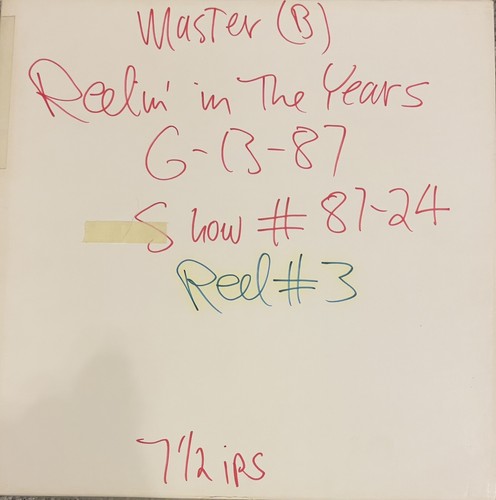 Master (B)
Reelin' in The Years
6-13-87
Show # 87-24
Reel #3
7 1/2 ips